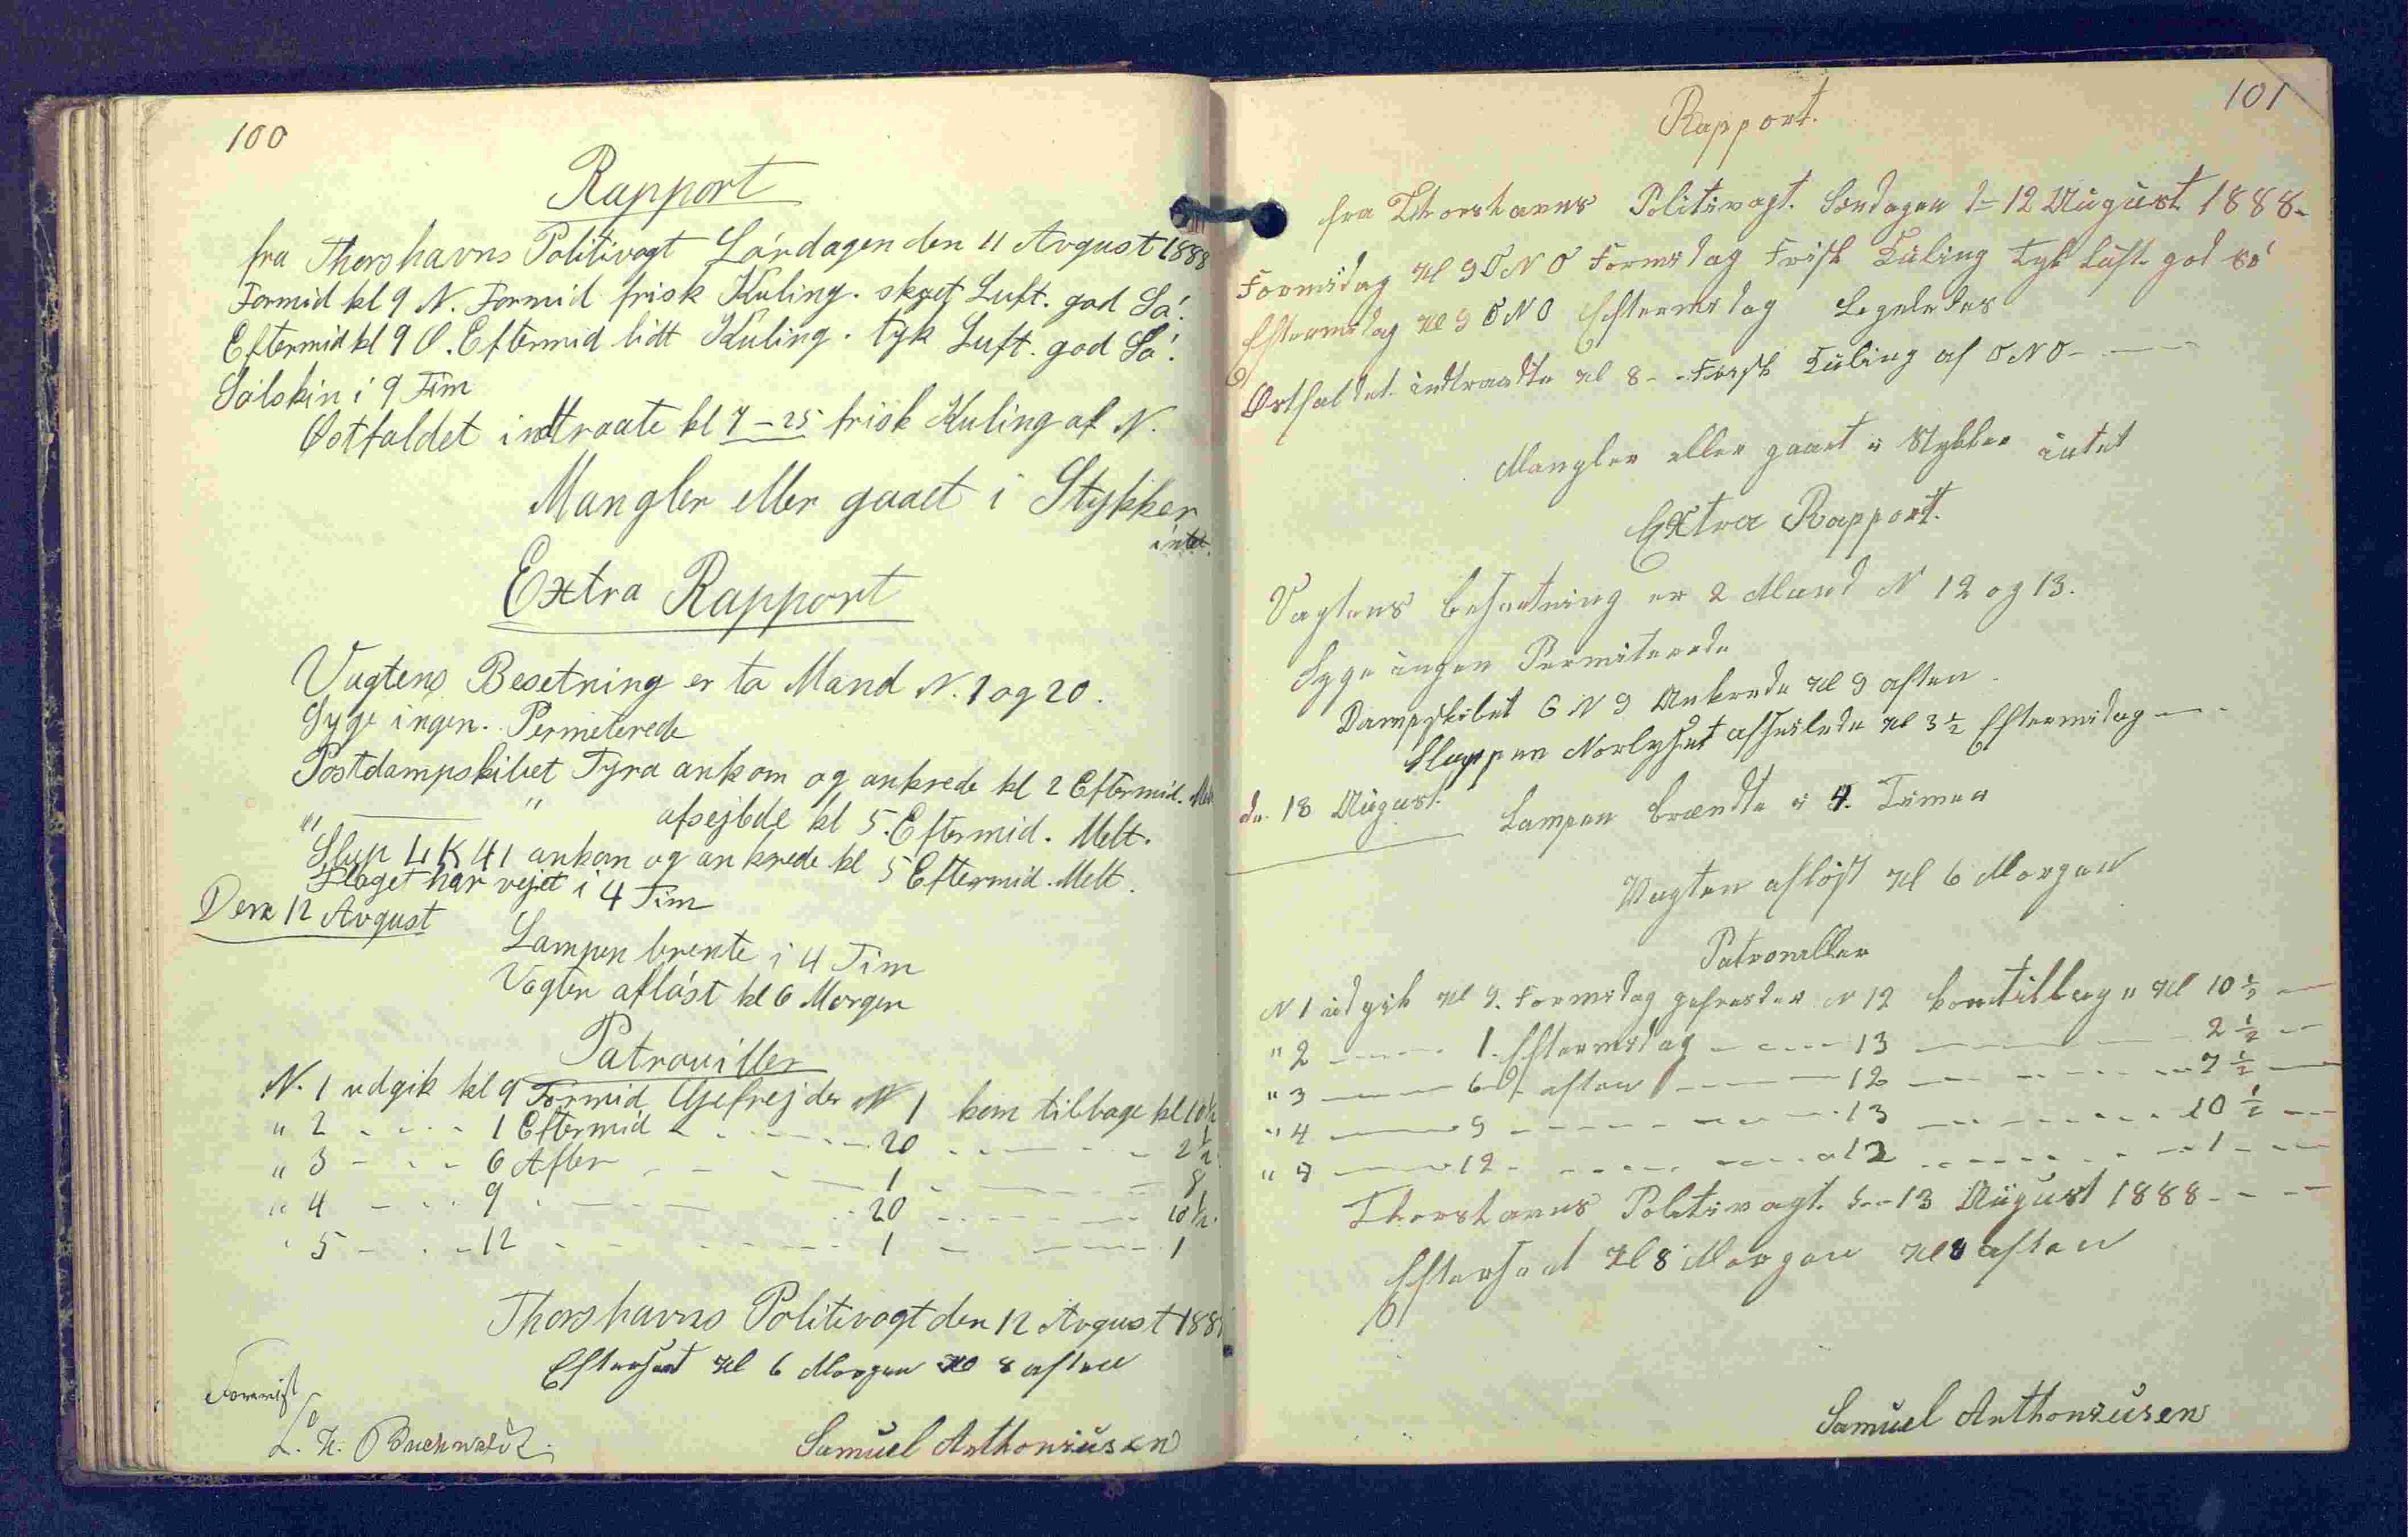 100
Rapport
fra Thorshavns Politivagt Lørdagen den 11 Avgust 1888
Formid kl 9 N. Formid frisk Kuling. skyet Luft. god Só.
Eftermid kl 9 O. Eftermid lidt Kuling. tyk Luft. god Só.
Sólskin i 9 Tim
Østfaldet indtraate kl 7-25 frisk Kuling af N.
Mangler eller gaaet i Stykker
intet.
Extra Rapport
Vagtens Besetning er to Mand N. 1 og 20.
Syge ingen. Permeterede
Postdampskibet Tyra ankom og ankrede kl 2 Eftermid.
" " afsejlede kl 5. Eftermid. Melt.
Slup LK 41 ankom og ankrede kl 5 Eftermid. Melt.
Flaget har vejet i 4 Tim
Den 12 Avgust
Lampen brente i 4 Tim
Vagten aflóst kl 6 Morgen
Patrouiller
N. 1 udgik kl 9 Formid Gjefrejder N 1 kom tilbage kl 10 1/2
" 2 - - - 1 Eftermid - - - 20 - - - 2 1/2
" 3 - - - 6 Aften - - - 1 - - - 8
" 4 - - - 9 - - - 20 - - - 10 1/2.
" 5 - - - 12 - - - 1 - - - 1
Thorshavns Politivagt den 12 Avgust 188
Efterseet Kl 6 Morgen Kl 8 aften
Forevist
L. H. Buchwaldt.
Samuel Anthoniusen
101
Rapport.
fra Thorshavns Politivagt. Søndagen d= 12 August 1888-
Formidag Kl 9 ONO Formidag Frisk Kuling tyk Luft god Só
Eftermidag Kl 9 ONO Eftermidag Ligeledes
Østfaldet indtraadte Kl 8 - - Frisk Kuling af ONO - —
Mangler eller gaaet i Stykker intet
Extra Rapport.
Vagtens besætning er 2 Mand N 12 og 13.
Syge ingen Permiterede
Dampskibet G N 9 Ankrede Kl 9 aften.
Sluppen Norlyset afseilede Kl 3 1/2 Eftermidag — -
dn. 13 August.
Lampen brændte i 4. Timer
Vagten afløst Kl 6 Morgen
Patroneller
N 1 udgik Kl 9. Formidag gefreider N 12 kom tilbage " Kl 10 1/2 —
" 2 - - - 1. Eftermidag - - - 13 - - - 2 1/2 —
" 3 - - - 6 aften - - - 12 - - - 7 1/2 —
" 4 - - - 9 - - - 13 - - - 10 1/2 —
" 4 - - - 12 - - - 12 - - - 1 - -
Thorshavns Politivagt. d - 13 August 1888 - - -
Efterseet Kl 8 Morgen Kl 8 aften
Samuel Anthoniusen